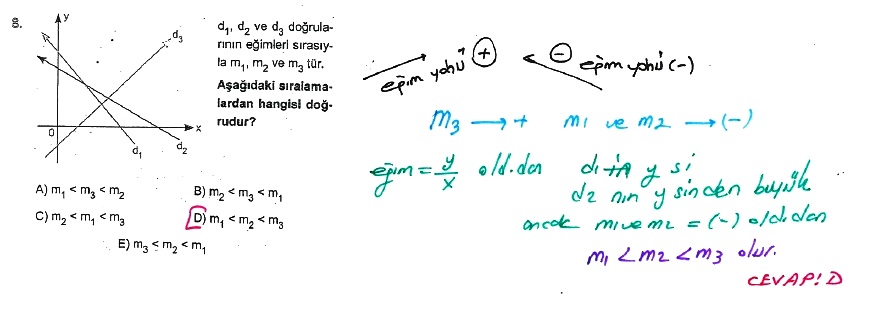 8.
y
d3
d1, d2 ve d3 doğrula-
rının eğimleri sırasıy-
la m1, m2 ve m3 tür.
Aşağıdaki sıralama-
lardan hangisi doğ-
rudur?
0
x
d1
d2
A) m1 < m3 < m2
B) m2 < m3 < m1
C) m2 < m1 < m3
D) m1 < m2 < m3
E) m3 < m2 < m1
eğim yönü +
- eğim yönü (-)
m3 → + m1 ve m2 → (-)
eğim = y/x old.dan
d1 in y si
d2 nin y sinden büyük
ancak m1 ve m2 = (-) old.dan
m1 < m2 < m3 olur.
CEVAP: D